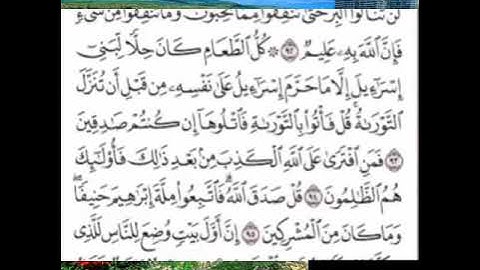 لَن تَنَالُوا۟ ٱلْبِرَّ حَتَّىٰ تُنفِقُوا۟ مِمَّا تُحِبُّونَ وَمَا تُنفِقُوا۟ مِن شَىْءٍ
فَإِنَّ ٱللَّهَ بِهِۦ عَلِيمٌ ٩٢ ۞ كُلُّ ٱلطَّعَامِ كَانَ حِلًّا لِّبَنِىٓ
إِسْرَٰٓءِيلَ إِلَّا مَا حَرَّمَ إِسْرَٰٓءِيلُ عَلَىٰ نَفْسِهِۦ مِن قَبْلِ أَن تُنَزَّلَ
ٱلتَّوْرَىٰةُ ۗ قُلْ فَأْتُوا۟ بِٱلتَّوْرَىٰةِ فَٱتْلُوهَآ إِن كُنتُمْ صَٰدِقِينَ
٩٣ فَمَنِ ٱفْتَرَىٰ عَلَى ٱللَّهِ ٱلْكَذِبَ مِنۢ بَعْدِ ذَٰلِكَ فَأُو۟لَٰٓئِكَ
هُمُ ٱلظَّٰلِمُونَ ٩٤ قُلْ صَدَقَ ٱللَّهُ ۗ فَٱتَّبِعُوا۟ مِلَّةَ إِبْرَٰهِيمَ حَنِيفًا ۖ
وَمَا كَانَ مِنَ ٱلْمُشْرِكِينَ ٩٥ إِنَّ أَوَّلَ بَيْتٍ وُضِعَ لِلنَّاسِ لَلَّذِى